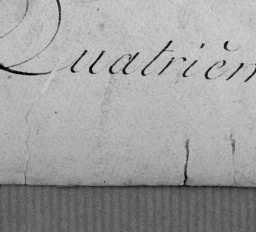 Quatrièm